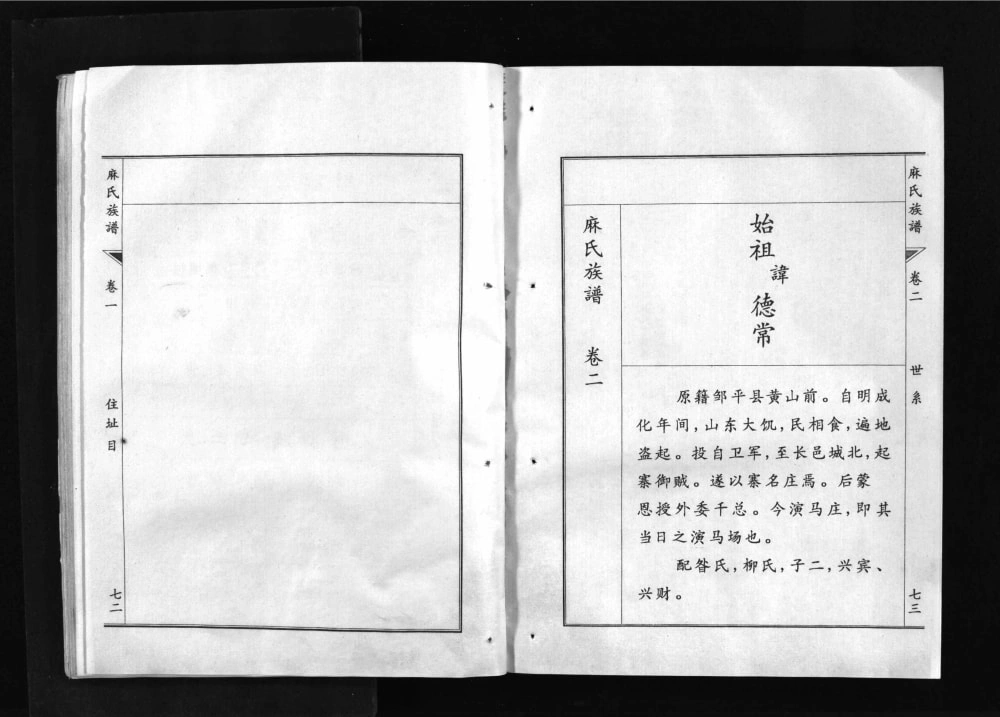 麻氏族譜
卷一
住址目
七二
麻氏族譜
卷二
世系
七三
麻氏族譜 卷二
始祖諱德常
原籍邹平县黄山前。自明成
化年间,山东大饥,民相食,遍地
盗起。投自卫军,至长邑城北,起
寨御贼。遂以寨名庄焉。后蒙
恩授外委千总。今演马庄,即其
当日之演马场也。
配昝氏,柳氏,子二,兴宾、
兴财。